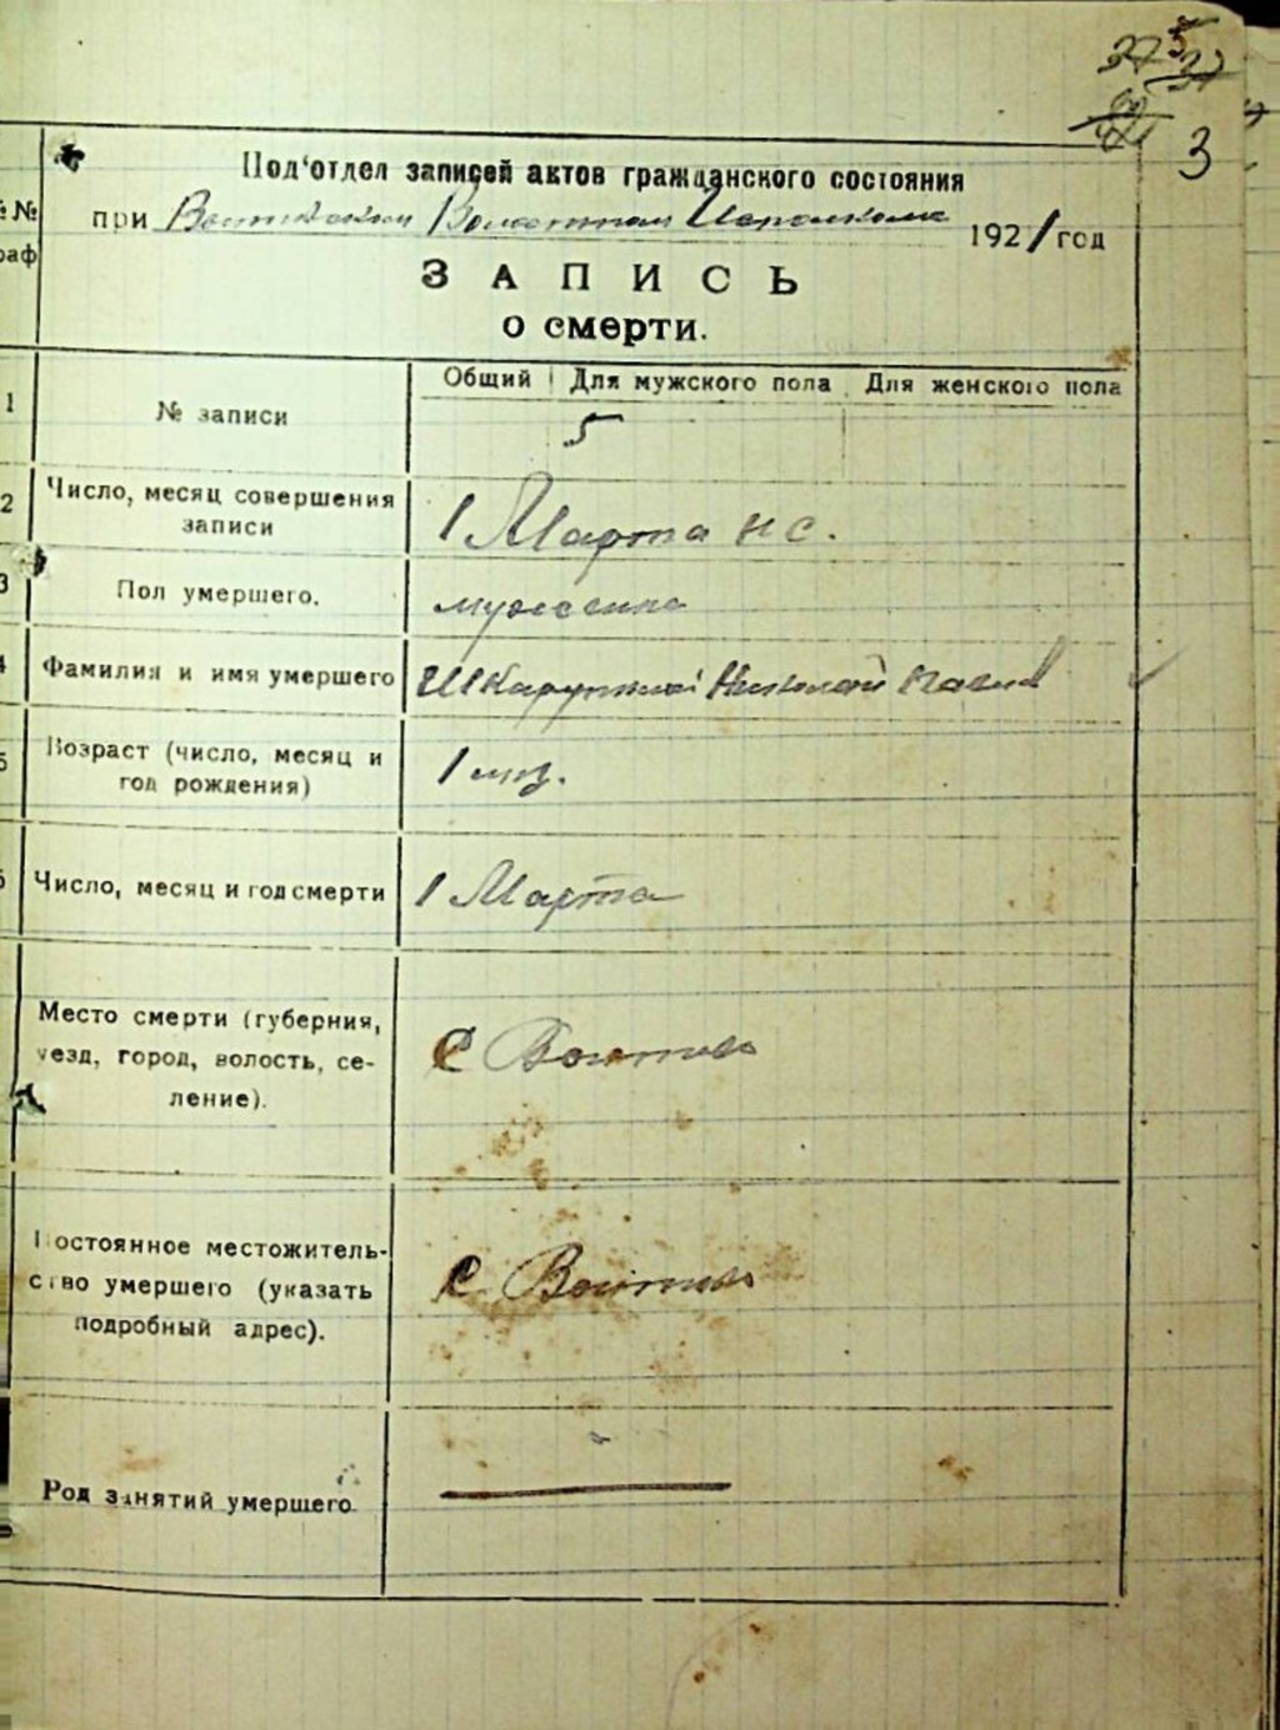 3
Под'отдел записей актов гражданского состояния
№№
раф
при Волостном Исполкоме 1921 год
ЗАПИСЬ
о смерти.
Общий Для мужского пола Для женского пола
1 № записи 5
2 Число, месяц совершения
записи
1 Марта н с.
3 Пол умершего.
мужеска
4 Фамилия и имя умершего
Николай Павлов
5 Возраст (число, месяц и
год рождения)
1 мц.
6 Число, месяц и год смерти
1 Марта
Место смерти (губерния,
уезд, город, волость, се-
ление).
С
Постоянное местожитель-
ство умершего (указать
подробный адрес).
С
Род занятий умершего